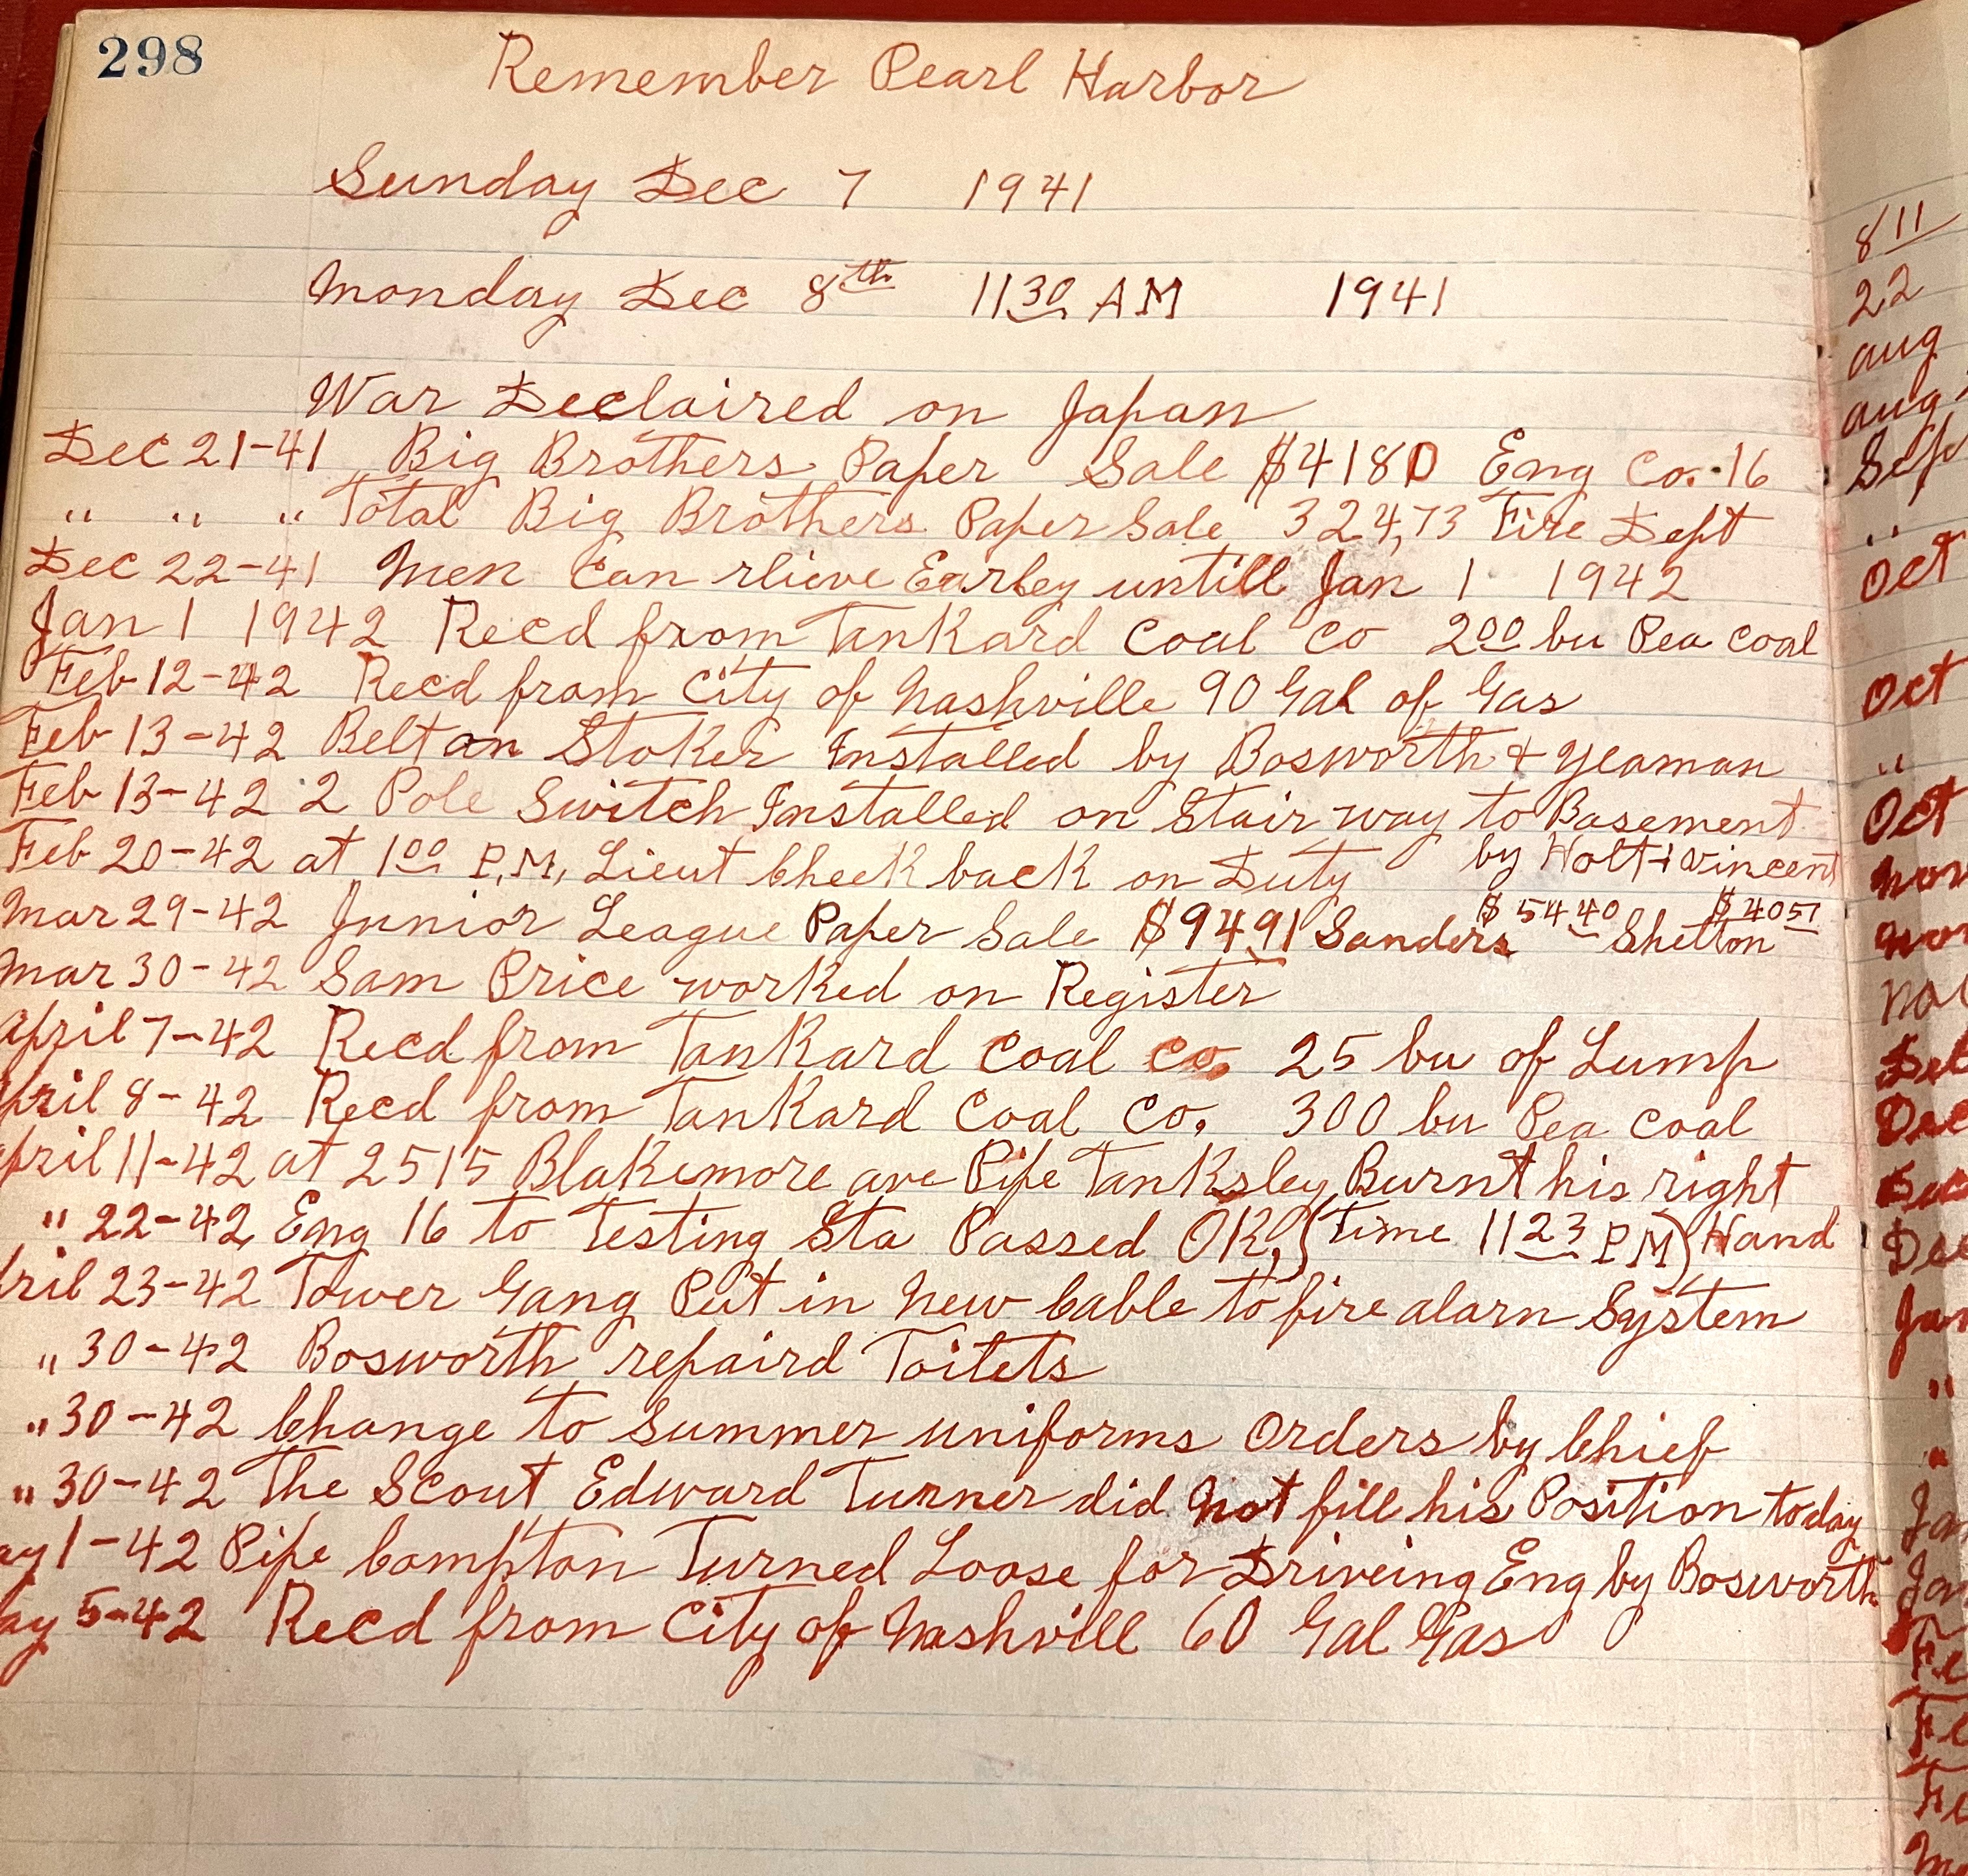 298
Remember Pearl Harbor
Sunday Dec 7 1941
Monday Dec 8th 1130 AM 1941
War Declaired on Japan
Dec 21-41 Big Brothers Paper Sale $4180 Eng Co. 16
" " " Total Big Brothers Paper Sale 324,73 Fire Dept
Dec 22-41 Men Can rlieve Earley untill Jan 1 1942
Jan 1 1942 Recd from Tankard Coal Co 200 bu Pea Coal
Feb 12-42 Rec'd from City of Nashville 90 Gal of Gas
Feb 13-42 Belt on Stoker Installed by Bosworth & Yeaman
Feb 13-42 2 Pole Switch Installed on Stair way to Basement
by Holt & Vincent
Feb 20-42 at 100 P.M. Lieut Cheek back on Duty
Mar 29-42 Junior League Paper Sale $9491 Sanders $5440 Shelton $4051
Mar 30-42 Sam Price worked on Register
April 7-42 Recd from Tankard Coal Co. 25 bu of Lump
pril 8-42 Recd from Tankard Coal Co. 300 bu Pea Coal
pril 11-42 at 2515 Blakemore ave Pipe Tanksley Burnt his right
Hand
" 22-42 Eng 16 to Testing Sta Passed OK. (Time 1123 PM)
ril 23-42 Tower Gang Put in New Cable to fire alarn System
" 30-42 Bosworth repaird Toilets
" 30-42 Change to Summer uniforms Orders by Chief
" 30-42 The Scout Edward Turner did not fill his Position today
ay 1-42 Pipe Compton Turned Loose for Driveing Eng by Bosworth
ay 5-42 Recd from City of Nashvill 60 Gal Gas
811
22
aug
aug
Sep
"
Oct
Oct
"
Oct
Nov
Nov
Dec
Dec
Jan
"
"
Ja
Ja
Fe
Fe
Fe